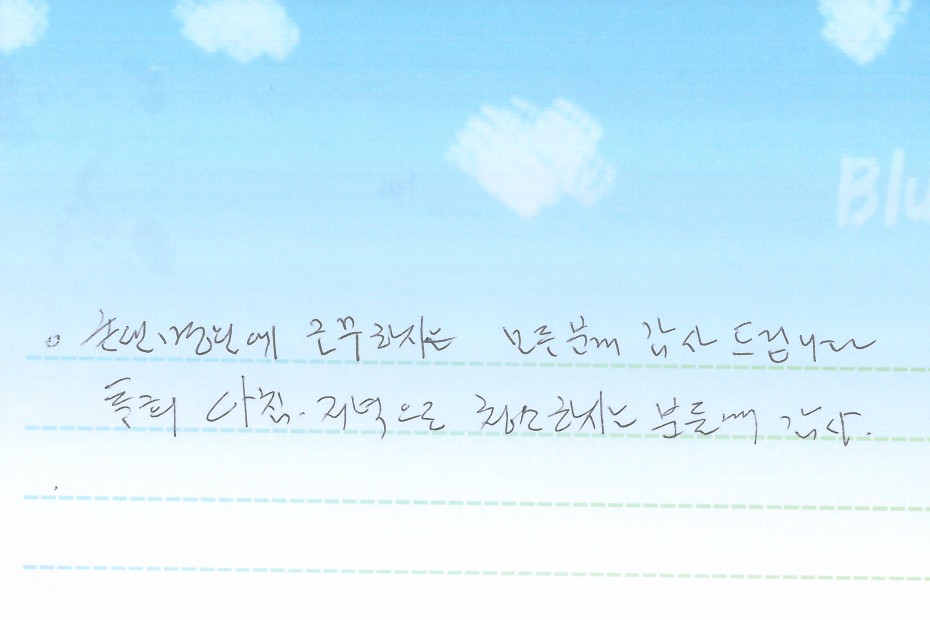 Blu
병원에 근무하시는 모든분께 감사 드립니다
특히 아침.저녁으로 청소하시는 분들께 감사.